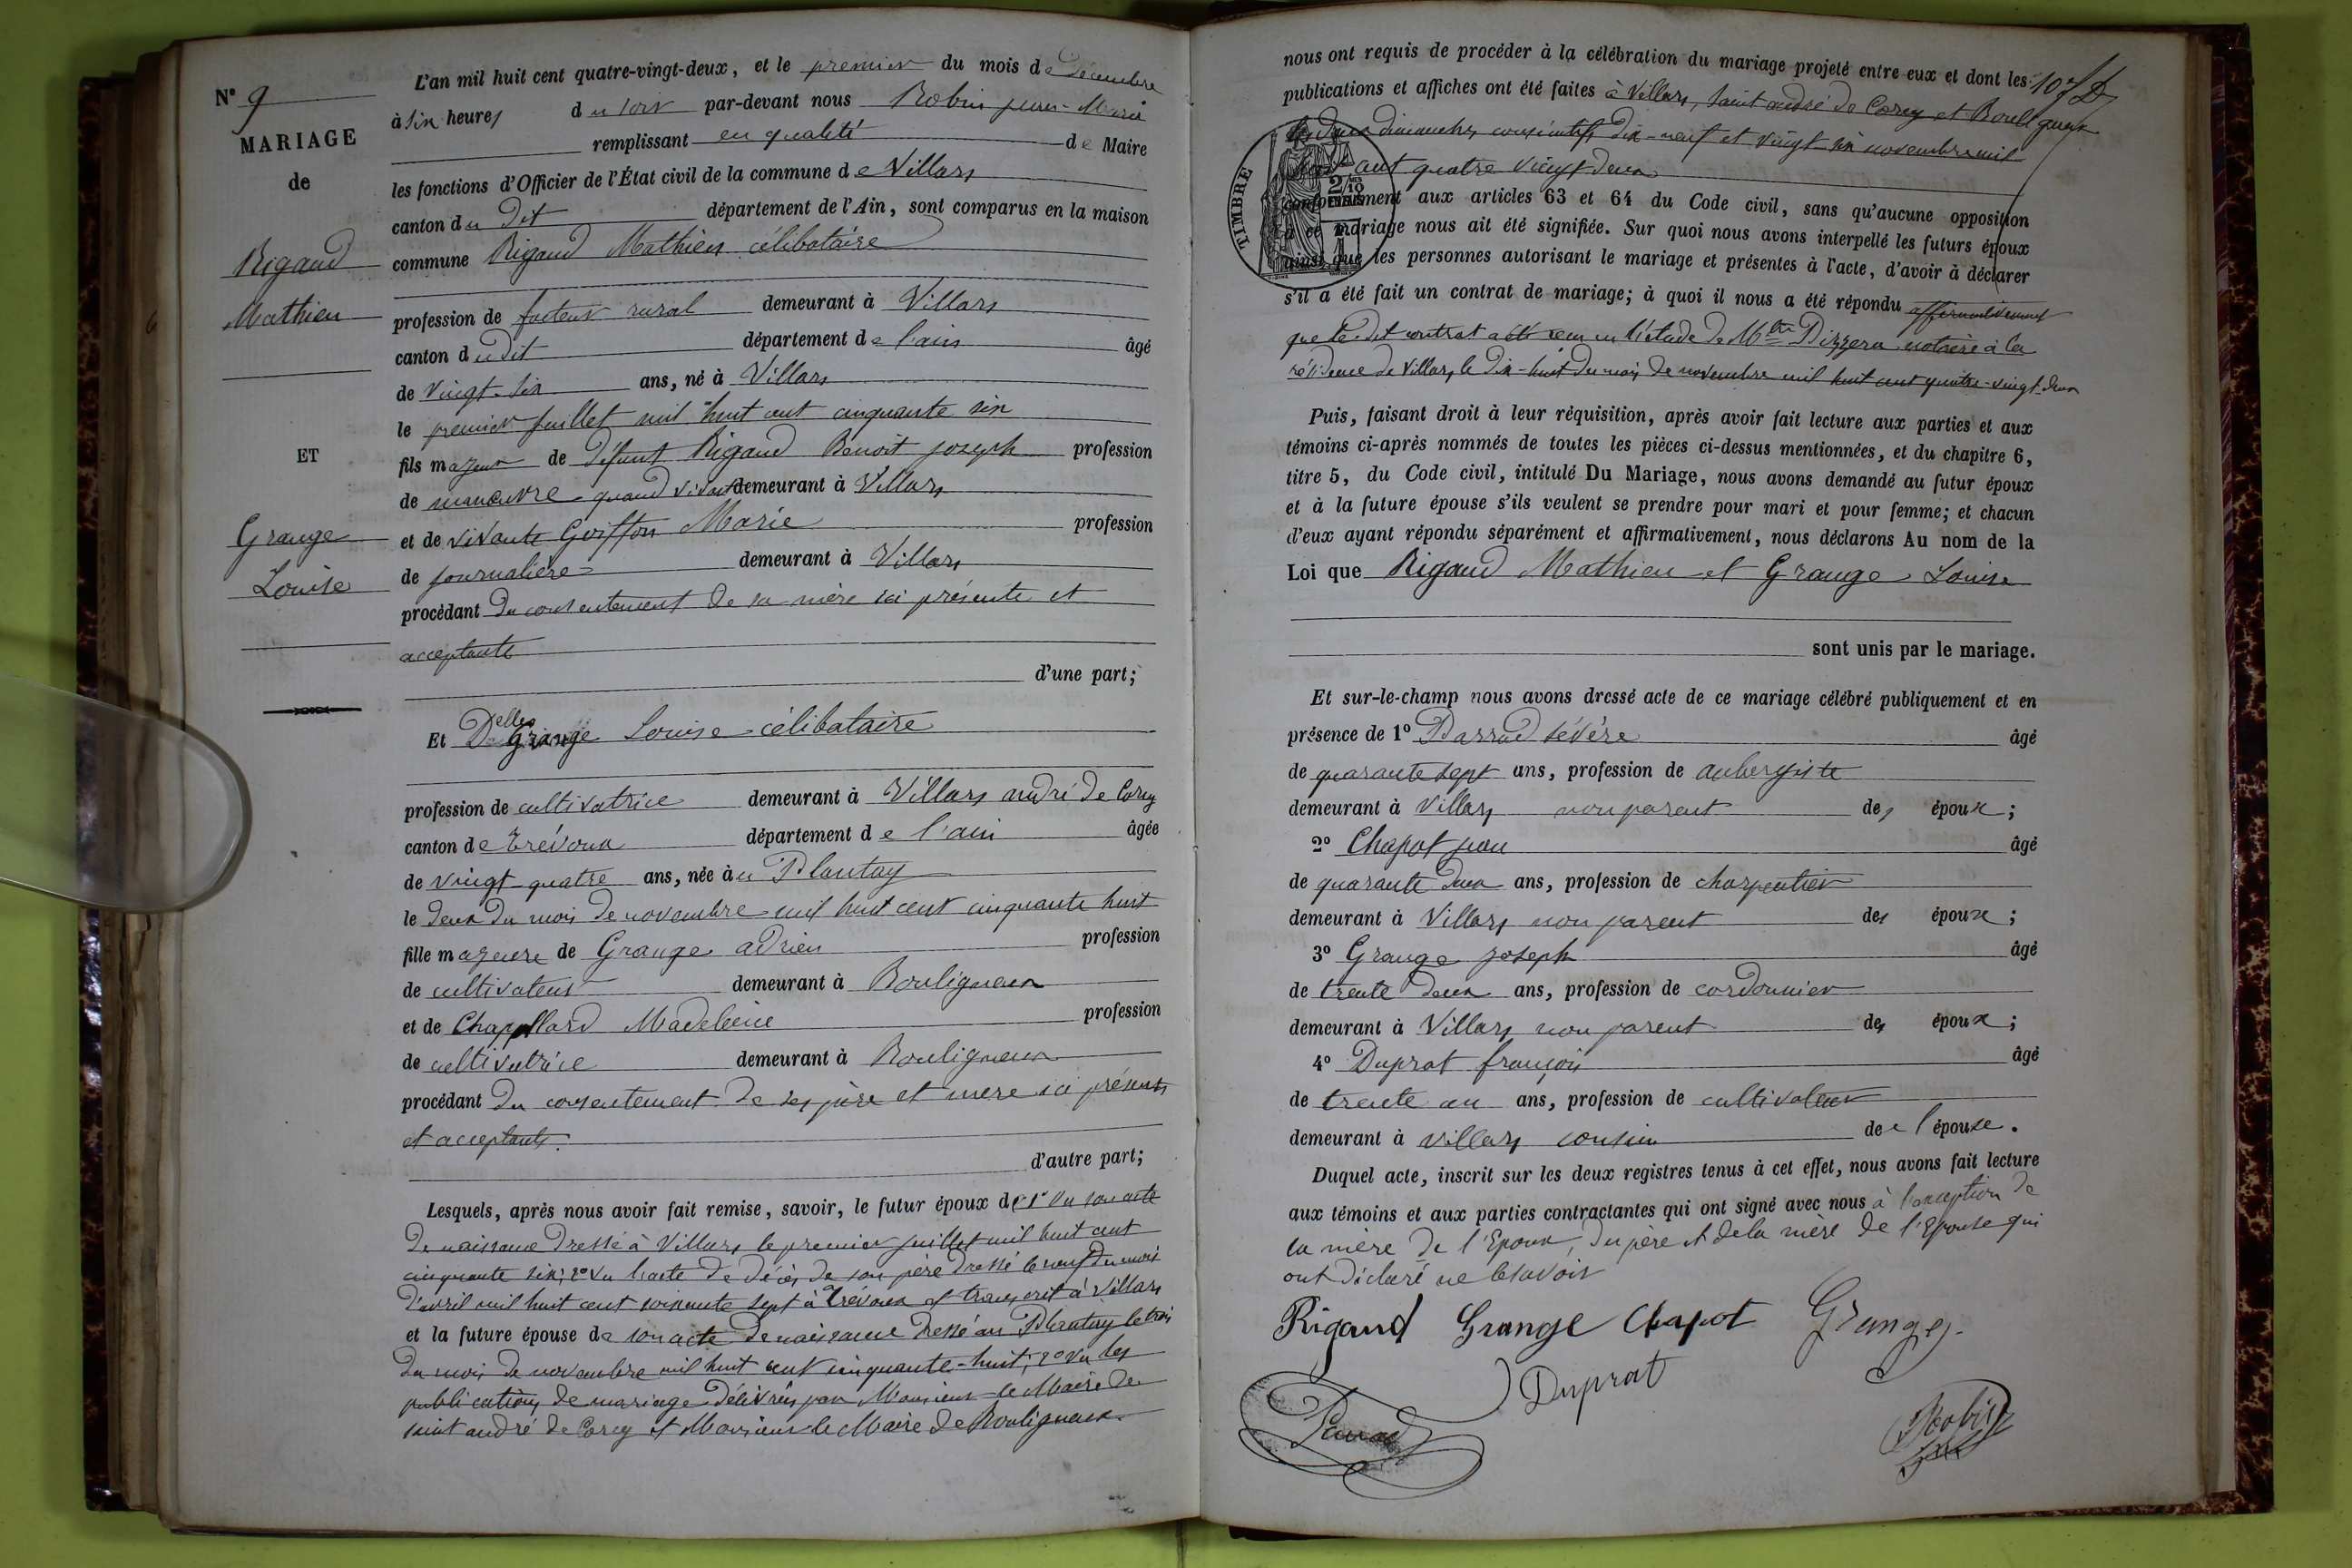 N° 9
MARIAGE
de
Rigaud
Mathieu
ET
Grange
Louise
L'an mil huit cent quatre-vingt-deux, et le premier du mois de Décembre
à six heures du soir par-devant nous Robin Marie
remplissant en qualité de Maire
les fonctions d'Officier de l'État civil de la commune de Villars
canton du dit département de l'Ain, sont comparus en la maison
commune Rigaud Mathieu célibataire
profession de facteur rural demeurant à Villars
canton dudit département de l'ain âgé
de vingt-six ans, né à Villars
le premier juillet mil huit cent cinquante six
fils majeur de défunt Rigaud Benoit joseph profession
de manœuvre quand vivant demeurant à Villars
et de vivante Goiffon Marie profession
de journalière demeurant à Villars
procédant du consentement de sa mère ici présente et
acceptante
d'une part;
Et Delle Grange Louise célibataire
profession de cultivatrice demeurant à Villars andré de Corcy
canton de Trévoux département de l'ain âgée
de vingt-quatre ans, née au Plantay
le deux du mois de novembre mil huit cent cinquante huit
fille majeure de Grange adrien profession
de cultivateur demeurant à Bouligneux
et de Chapelland Madeleine profession
de cultivatrice demeurant à Bouligneux
procédant du consentement de ses père et mère ici présents
et acceptants.
d'autre part;
Lesquels, après nous avoir fait remise, savoir, le futur époux de 1° Vu son acte
de naissance dressé à Villars le premier juillet mil huit cent
cinquante six; 2° vu l'acte de décès de son père dressé le neuf du mois
d'avril mil huit cent soixante sept à Trévoux et transcrit à Villars
et la future épouse de son acte de naissance dressé au Plantay le trois
du mois de novembre mil huit cent cinquante-huit; 2° vu les
publications de mariage délivrées par Monsieur le Maire de
saint andré de Corcy et Monsieur le Maire de Bouligneux.
nous ont requis de procéder à la célébration du mariage projeté entre eux et dont les
publications et affiches ont été faites à Villars, Saint andré de Corcy et Bouligneux
les deux dimanches consécutifs dix-neuf et vingt six novembre mil
huit cent quatre vingt deux
TIMBRE
conformément aux articles 63 et 64 du Code civil, sans qu'aucune opposition
à ce mariage nous ait été signifiée. Sur quoi nous avons interpellé les futurs époux
ainsi que les personnes autorisant le mariage et présentes à l'acte, d'avoir à déclarer
s'il a été fait un contrat de mariage; à quoi il nous a été répondu affirmativement
que le dit contrat a été reçu en l'étude de Mtre Pizzera notaire à la
résidence de Villars le dix-huit du mois de novembre mil huit cent quatre-vingt-deux
Puis, faisant droit à leur réquisition, après avoir fait lecture aux parties et aux
témoins ci-après nommés de toutes les pièces ci-dessus mentionnées, et du chapitre 6,
titre 5, du Code civil, intitulé Du Mariage, nous avons demandé au futur époux
et à la future épouse s'ils veulent se prendre pour mari et pour femme; et chacun
d'eux ayant répondu séparément et affirmativement, nous déclarons Au nom de la
Loi que Rigaud Mathieu et Grange Louise
sont unis par le mariage.
Et sur-le-champ nous avons dressé acte de ce mariage célébré publiquement et en
présence de 1° Parrad sévère âgé
de quarante sept ans, profession de aubergiste
demeurant à Villars non parent des époux;
2° Chapot jean âgé
de quarante deux ans, profession de charpentier
demeurant à Villars non parent des époux;
3° Grange joseph âgé
de trente deux ans, profession de cordonnier
demeurant à Villars non parent des époux;
4° Duprat françois âgé
de trente un ans, profession de cultivateur
demeurant à villars cousin de l'épouse.
Duquel acte, inscrit sur les deux registres tenus à cet effet, nous avons fait lecture
aux témoins et aux parties contractantes qui ont signé avec nous à l'exception de
la mère de l'Epoux, du père et de la mère de l'Epouse qui
ont déclaré ne le savoir
Rigaud Grange Chapot Grange j.
Parrad Duprat Robin